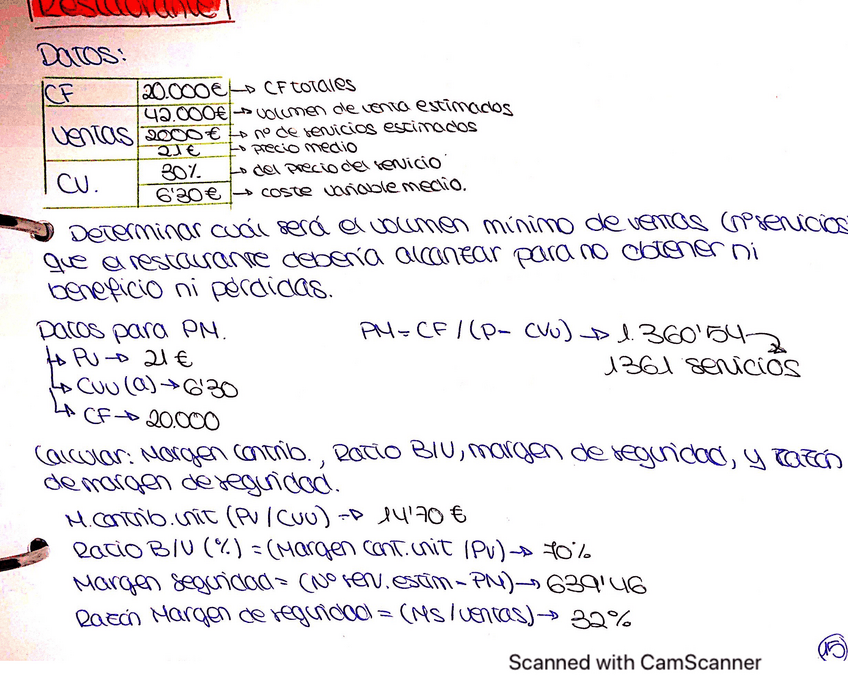 Restaurante
Datos:
CF 20.000€ → CF totales
Ventas 42.000€ → volumen de venta estimados
2000€ → nº de servicios estimados
21€ → precio medio
CV. 30% → del precio del servicio
6'30€ → coste variable medio.
Determinar cuál será el volumen mínimo de ventas (nºservicios
que el restaurante debería alcanzar para no obtener ni
beneficio ni pérdidas.
Datos para PM. PM = CF / (P - CVU) → 1.360'54
↳ PV → 21€ 1361 servicios
↳ CVU (a) → 6'30
↳ CF → 20.000
Calcular: Margen contrib., Ratio B/V, margen de seguridad, y razón
de margen de seguridad.
M. contrib. unit (PV / CVU) → 14'70 €
Ratio B/V (%) = (Margen cont. unit / PV) → 70%
Margen seguridad = (Nº serv. estim - PM) → 639'46
Razón Margen de seguridad = (MS / ventas) → 32%
15
Scanned with CamScanner